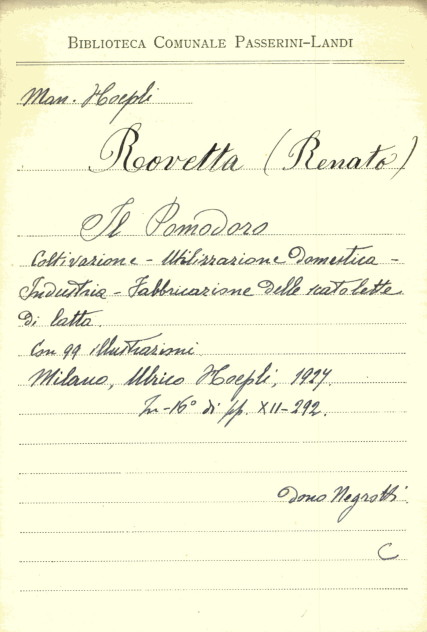 BIBLIOTECA COMUNALE PASSERINI-LANDI
Man. Hoepli
Rovetta (Renato)
Il Pomodoro
Coltivazione - Utilizzazione Domestica -
Industria - Fabbricazione delle scatolette
di latta.
Con 99 illustrazioni
Milano, Ulrico Hoepli, 1927.
In-16° di pp. XII-292.
Dono Negrotti.
C